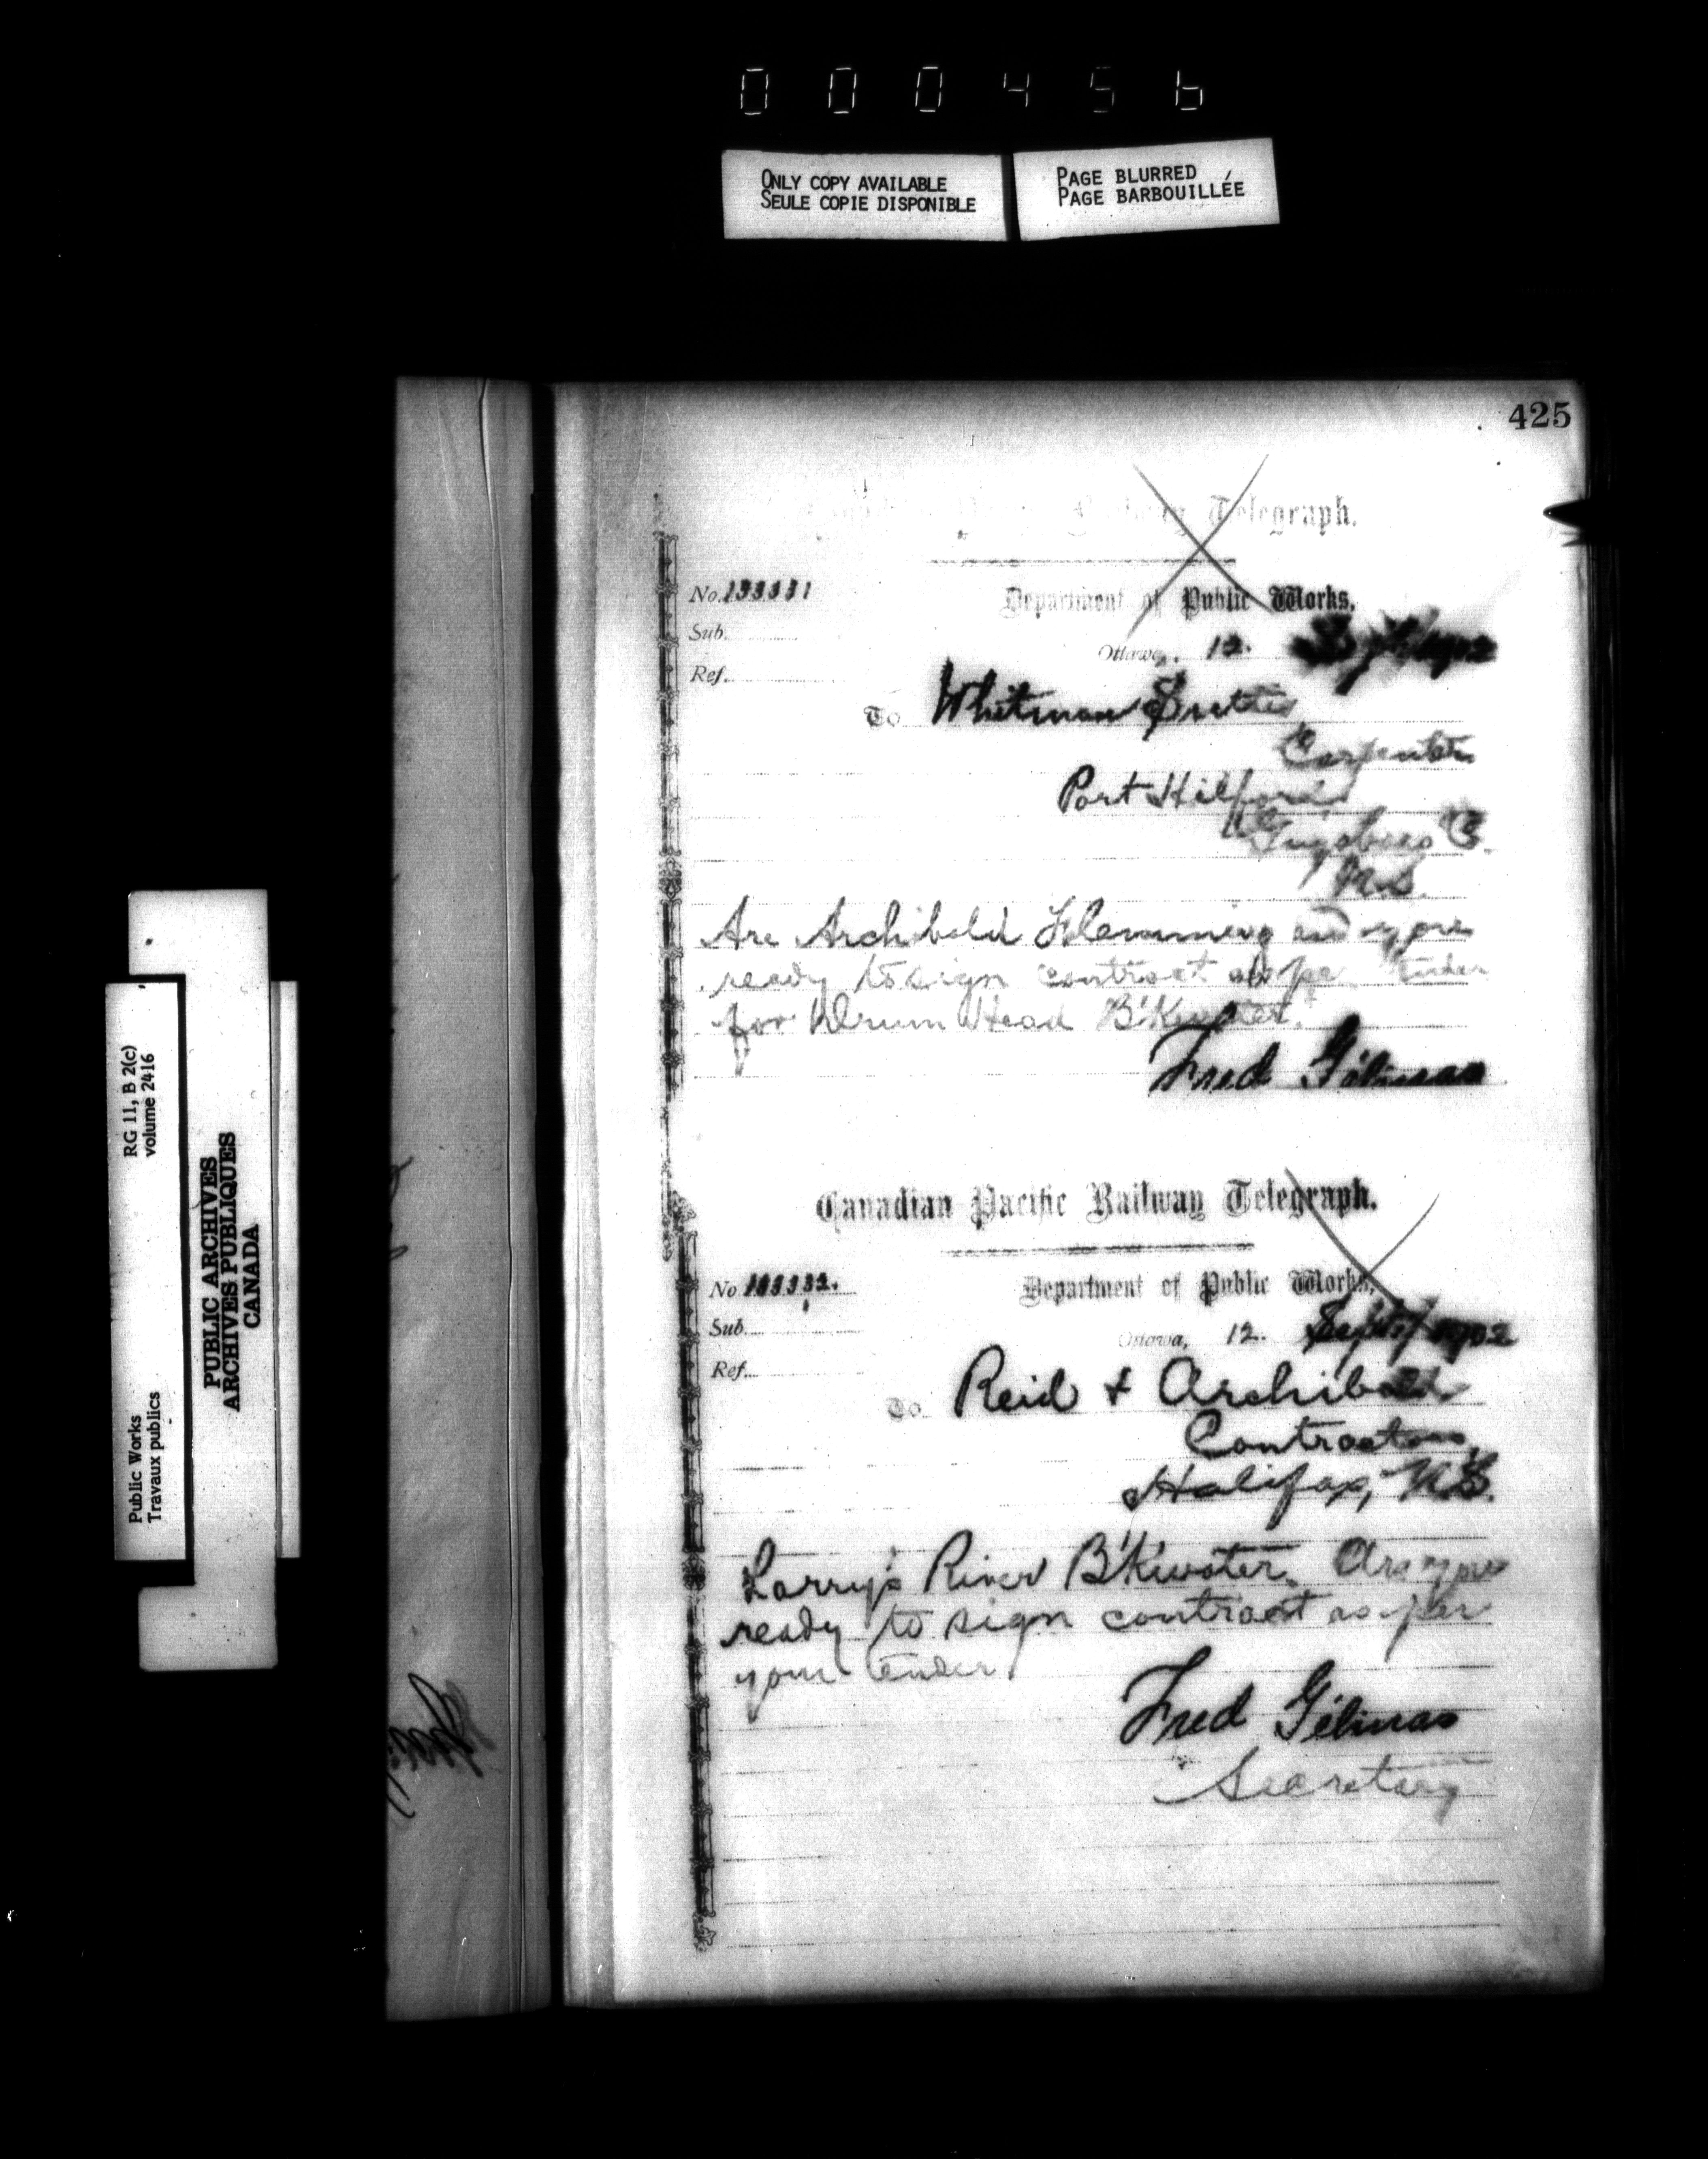 000456
ONLY COPY AVAILABLE
SEULE COPIE DISPONIBLE
PAGE BLURRED
PAGE BARBOUILLÉE
425
Telegraph.
No. 133331
Department of Public Works.
Sub.
Ottawa, 12. Sept/1902
Ref.
To Whitman
Carpenter
Port Hilford
Guysboro Co.
N.S.
Are Archibald Flemming and you
ready to sign contract as per tender
for Drum Head B'Kwater.
Fred Gélinas
Canadian Pacific Railway Telegraph.
No 133332.
Department of Public Works,
Sub.
Ottawa, 12. Sept/1902
Ref.
To Reid & Archibald
Contractors,
Halifax, N.S.
Larry's River B'Kwater. Are you
ready to sign contract as per
your tender.
Fred Gélinas
Secretary
RG 11, B 2(c)
volume 2416
PUBLIC ARCHIVES
ARCHIVES PUBLIQUES
CANADA
Public Works
Travaux publics